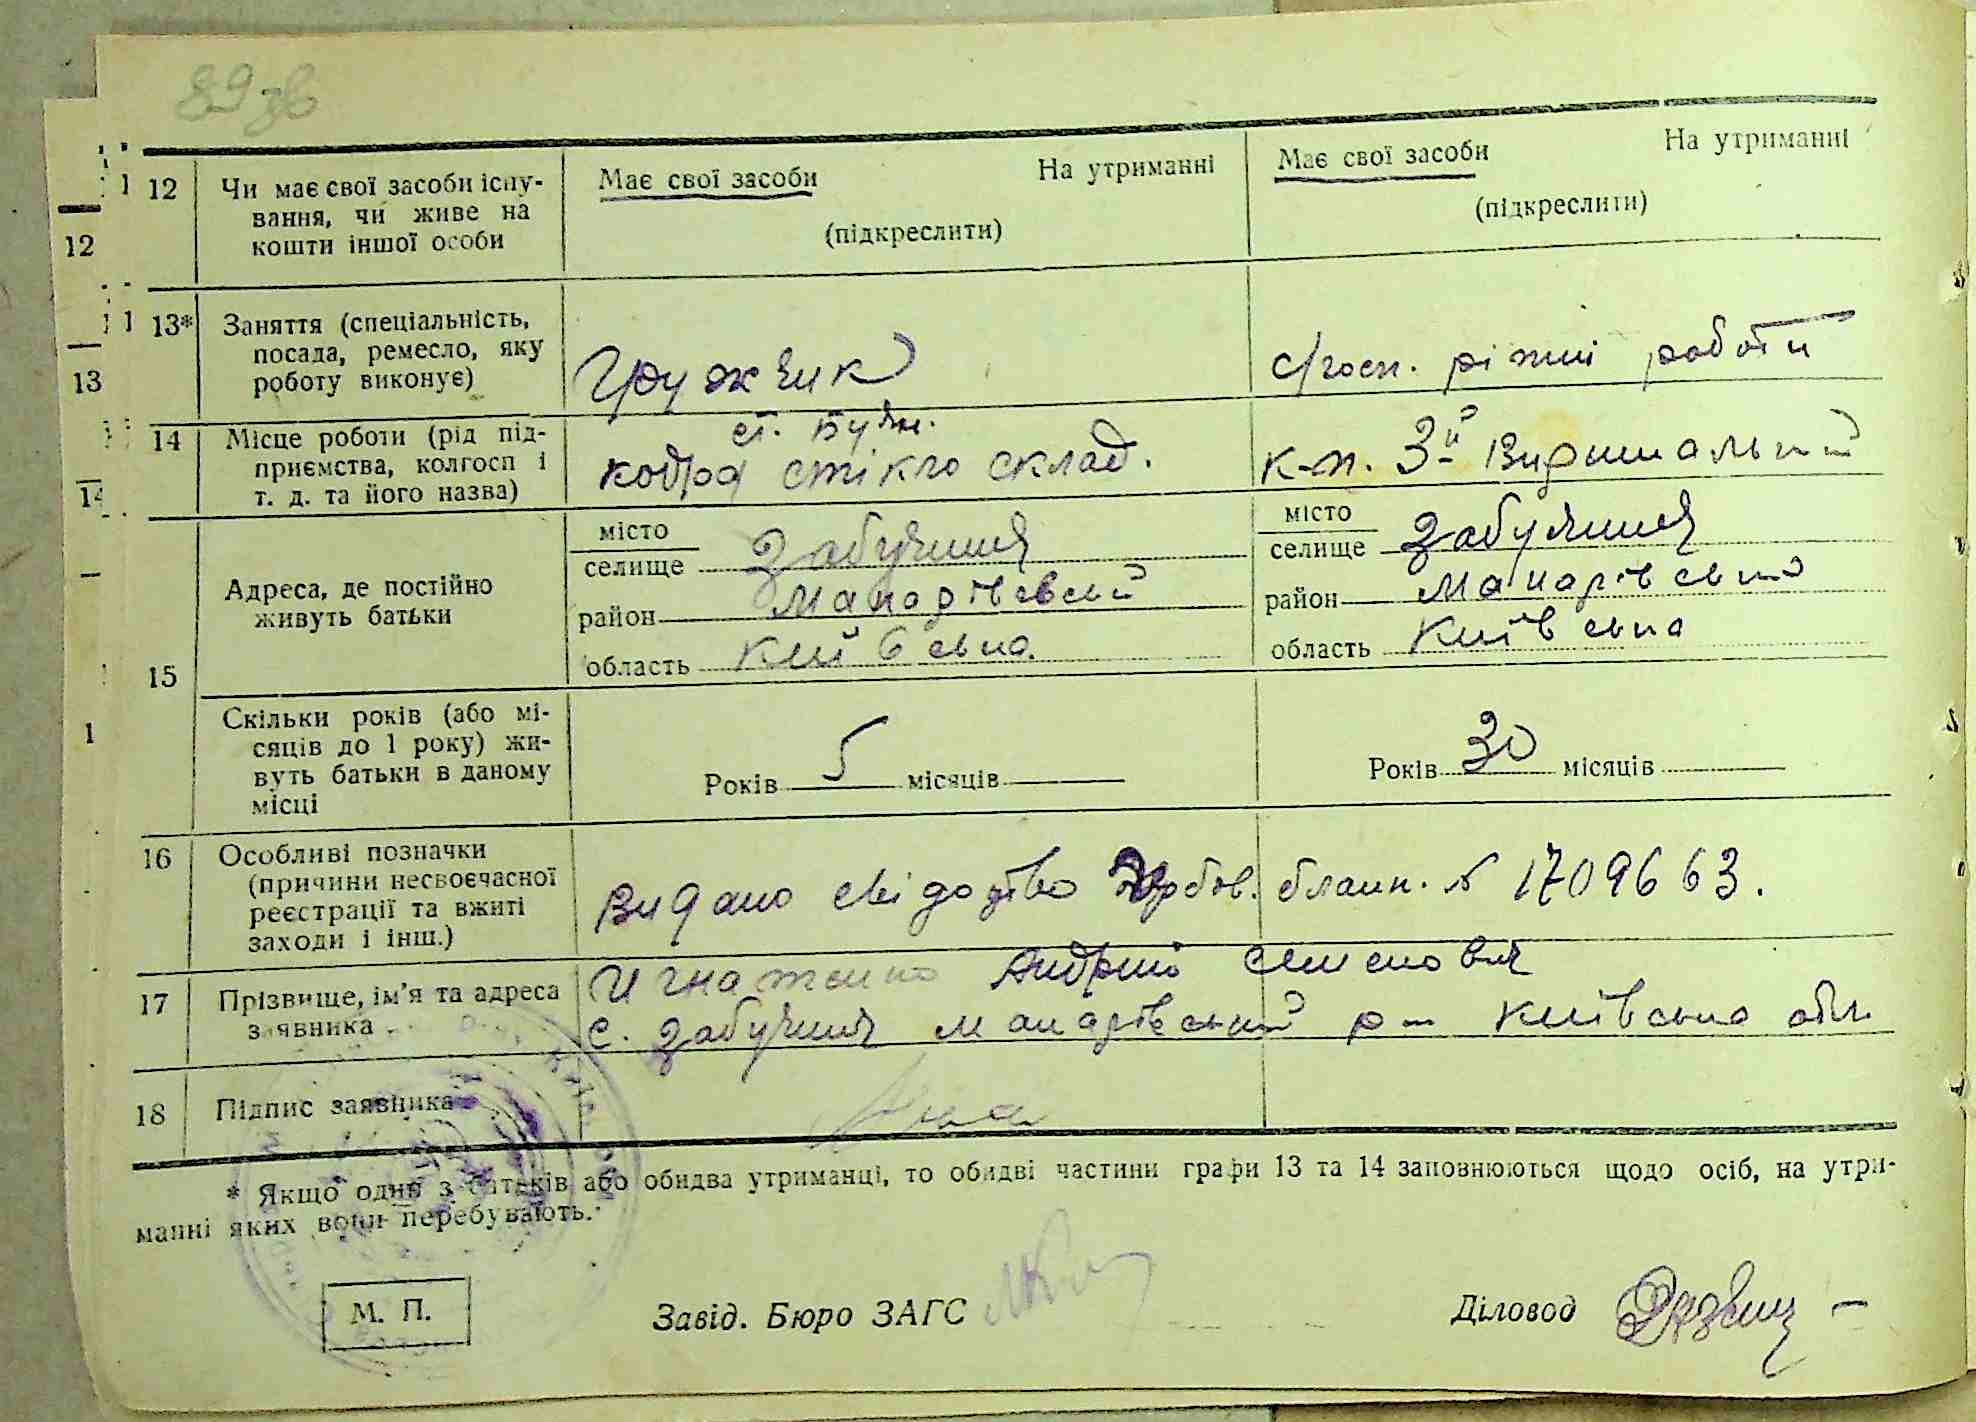 89 зв
12 Чи має свої засоби існу-
вання, чи живе на
кошти іншої особи
Має свої засоби На утриманні
(підкреслити)
Має свої засоби На утриманні
(підкреслити)
12
13* Заняття (спеціальність,
посада, ремесло, яку
роботу виконує)
Грузчик
с/госп. ріжні роботи
13
14 Місце роботи (рід під-
приємства, колгосп і
т. д. та його назва)
ст. Буян.
стікло склад.
к-п. 3й Вирішальний
14
15 Адреса, де постійно
живуть батьки
місто
селище Забуяння
район Макарівський
область Київська
місто
селище Забуяння
район Макарівський
область Київська
Скільки років (або мі-
сяців до 1 року) жи-
вуть батьки в даному
місці
Років 5 місяців
Років 30 місяців
1
16 Особливі позначки
(причини несвоєчасної
реєстрації та вжиті
заходи і інш.)
Видано свідоцтво гербов. бланк. № 1709663.
17 Прізвище, ім'я та адреса
заявника
Игнатенко Андрій Семенович
с. Забуяння Макарівський р-н Київська обл.
18 Підпис заявника
* Якщо один з батьків або обидва утриманці, то обидві частини графи 13 та 14 заповнюються щодо осіб, на утри-
манні яких вони перебувають.
М. П.
Завід. Бюро ЗАГС
Діловод